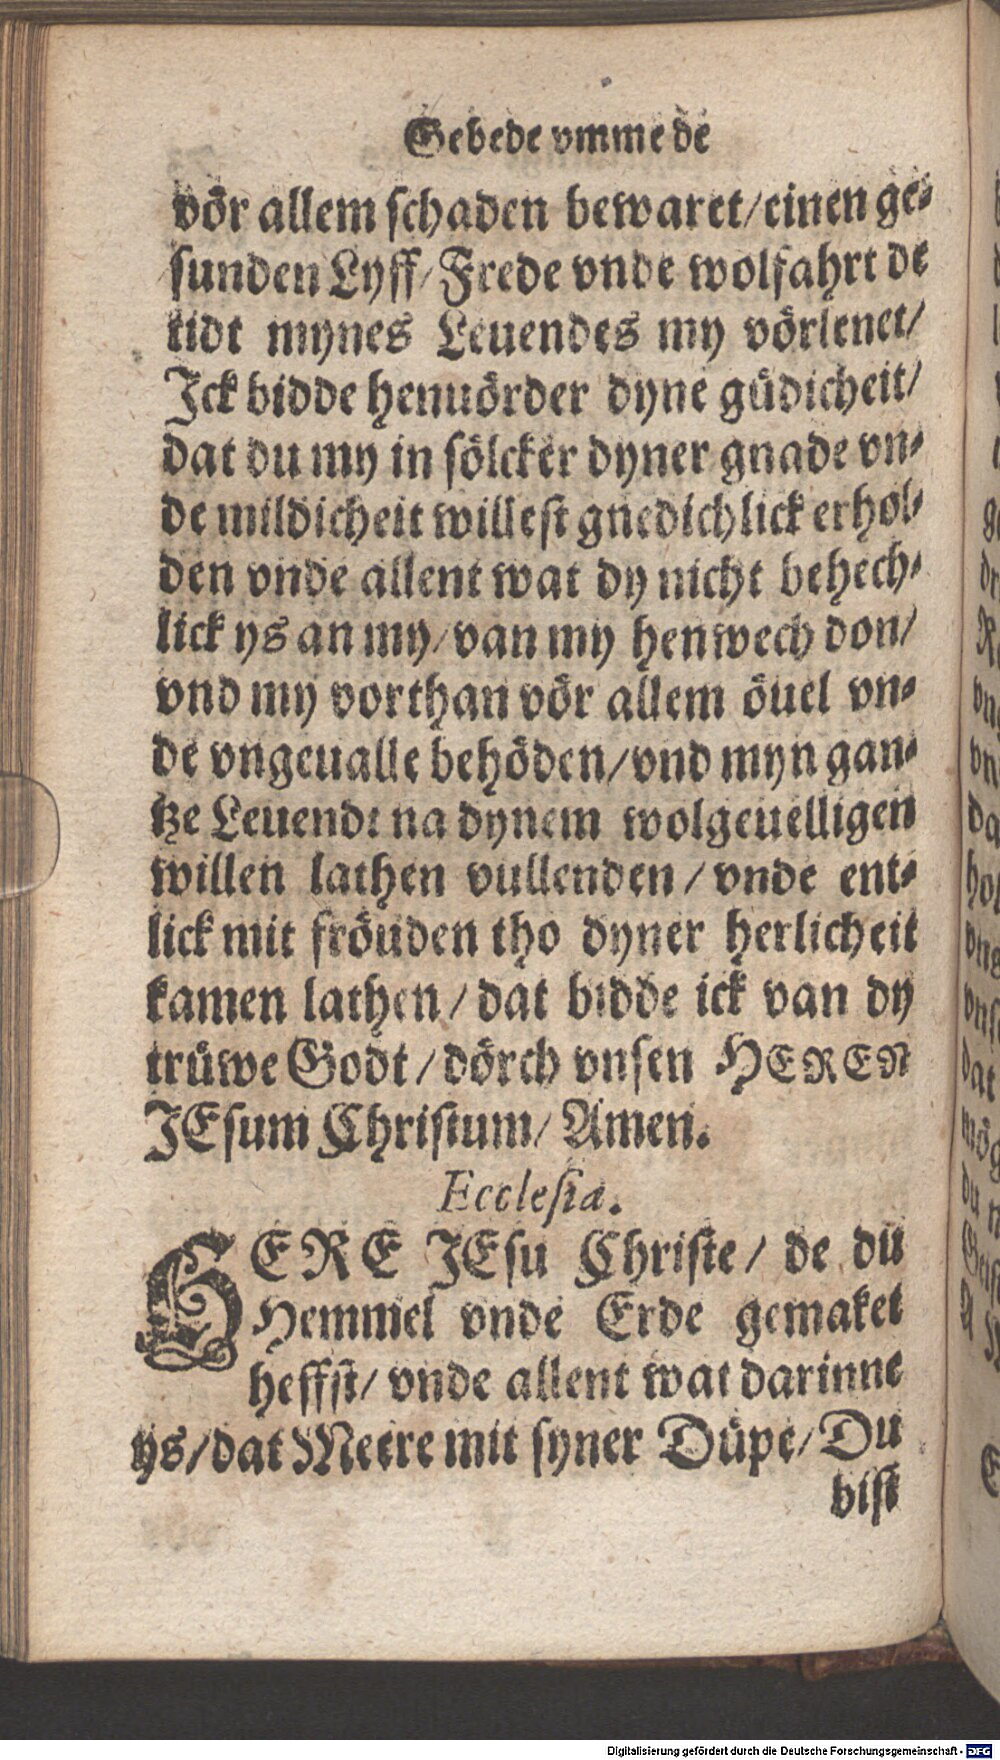 Gebede vmme de
vör allem schaden bewaret/einen ge-
sunden Lyff/Frede vnde wolfahrt de
tidt mynes Leuendes my vörlenet/
Jck bidde henuörder dyne güdicheit/
dat du my in sölcker dyner gnade vn-
de mildicheit willest gnedichlick erhol-
den vnde allent wat dy nicht behech-
lick ys an my/van my henwech don/
vnd my vorthan vör allem öuel vn-
de vngeualle behöden/vnd myn gan-
tze Leuendt na dynem wolgeuelligen
willen lathen vullenden/vnde ent-
lick mit fröuden tho dyner herlicheit
kamen lathen/dat bidde ick van dy
trüwe Godt/dörch vnsen HEREN
JEsum Christum/Amen.
Ecclesiæ.
HERE JEsu Christe/ de du
Hemmel vnde Erde gemaket
heffst/vnde allent wat darinne
ys/dat Meere mit syner Düpe/Du
bist
Digitalisierung gefördert durch die Deutsche Forschungsgemeinschaft - DFG